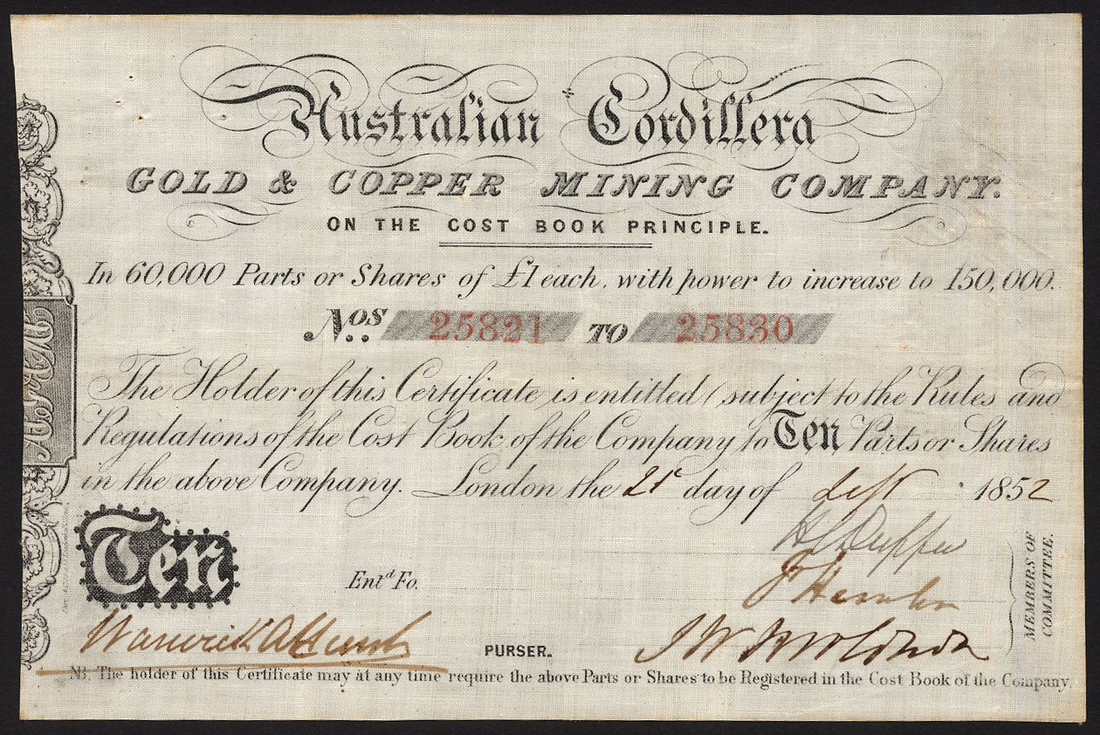 Australian Cordillera
GOLD & COPPER MINING COMPANY.
ON THE COST BOOK PRINCIPLE.
In 60,000 Parts or Shares of £1 each, with power to increase to 150,000.
Nos. 25821 TO 25830
The Holder of this Certificate is entitled (subject to the Rules and
Regulations of the Cost Book of the Company to Ten Parts or Shares
in the above Company. London the 21st day of Sept 1852
Ten
Entd. Fo.
MEMBERS OF
COMMITTEE.
Warwick
PURSER.
NB. The holder of this Certificate may at any time require the above Parts or Shares to be Registered in the Cost Book of the Company.